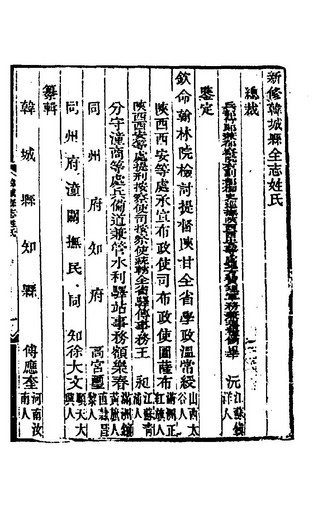 新修韓城縣全志姓氏
總裁
兵部侍郎兼都察院副都御史巡撫陝西 畢沅 江蘇鎮洋人
鑒定
欽命翰林院檢討提督陝甘全省學政溫常綬 山西太谷人
陝西西安等處承宣布政使司布政使圖薩布 滿洲正紅旗人
陝西西安等處提刑按察使司按察使 全省驛傳事務王昶 江蘇青浦人
分守潼商等處兵備道兼管水利驛站事務額樂春 滿洲鑲黃旗人
同州府知府 高宮 西 黎人
同州府潼關撫民同知徐大文 順天大興人
纂輯
韓城縣知縣 傅應奎 河南汝南人
韓城縣志姓氏